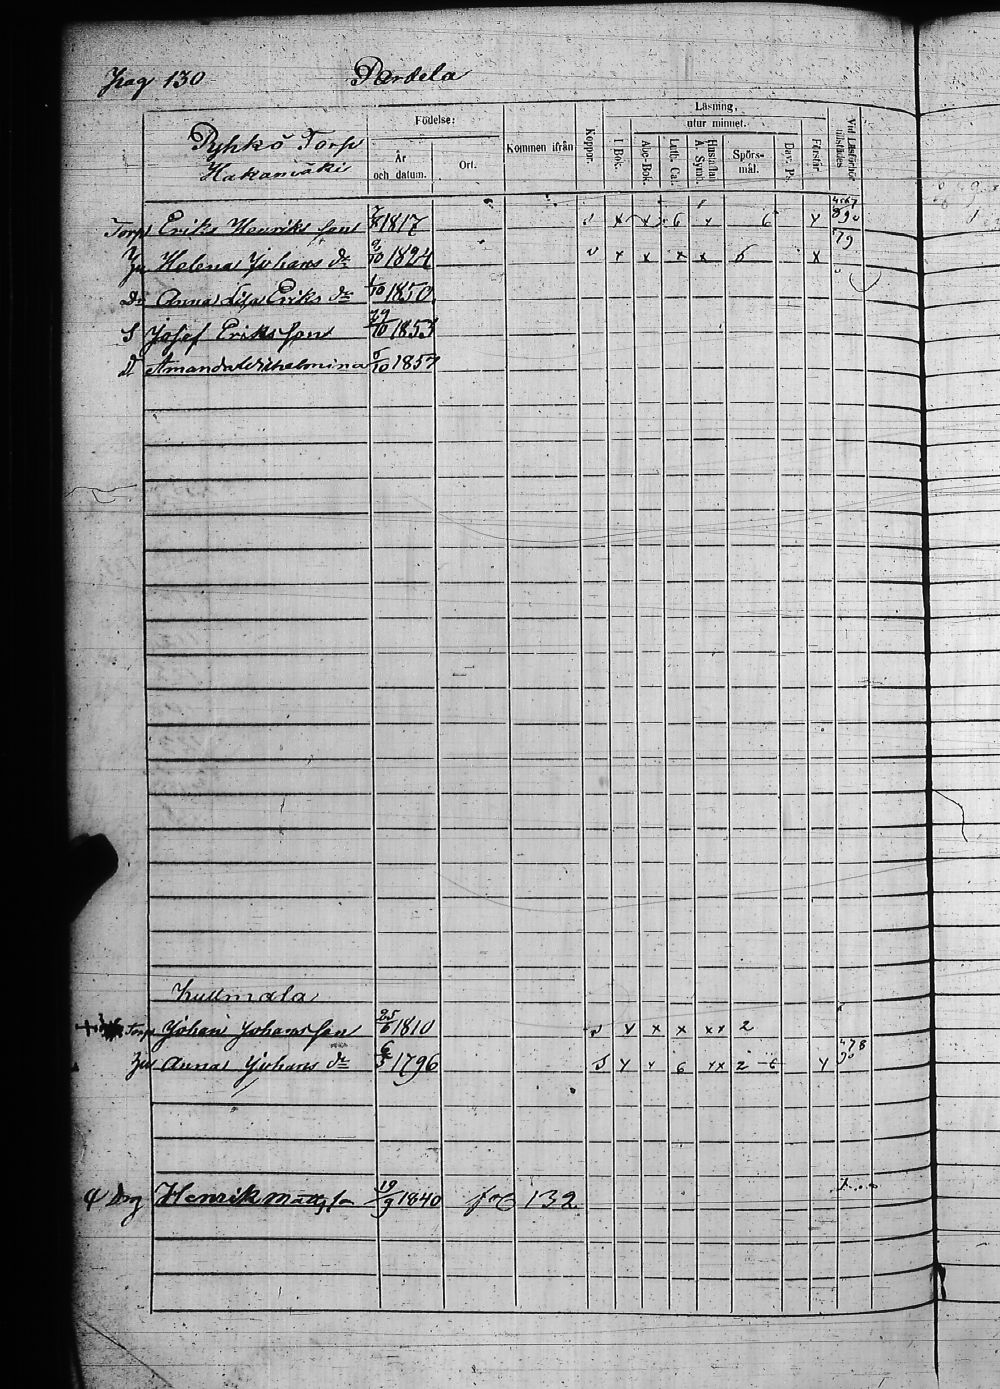 Pag 130 Pardela
Pyhkö Torp
Hakamäki
Födelse:
År och datum.
Ort.
Kommen ifrån
Koppor.
Läsning.
utur minnet.
I Bok.
Abc-Bok.
Luth. Cat.
Hustaflan A. Symb.
Spörs-mål.
Dav. Ps.
Förstår.
Vid Läsförhör tillstädes
Torp Erik Henriks son 1817 x x 6 x 6 x
Hu Helena Johans dr 9/10 1824 x x x x 6 x
Dr Anna Lisa Eriks dr 1/10 1850
S Josef Eriks son 29/10 1853
D Amanda Wilhelmina 5/10 1857
Kullmala
Torp Johan Johansson 25/6 1810 x x x xx 2
Hu Anna Johans dr 6/3 1796 x x 6 xx 2 6 x
Drg Henrik Matts son 19/9 1840 132